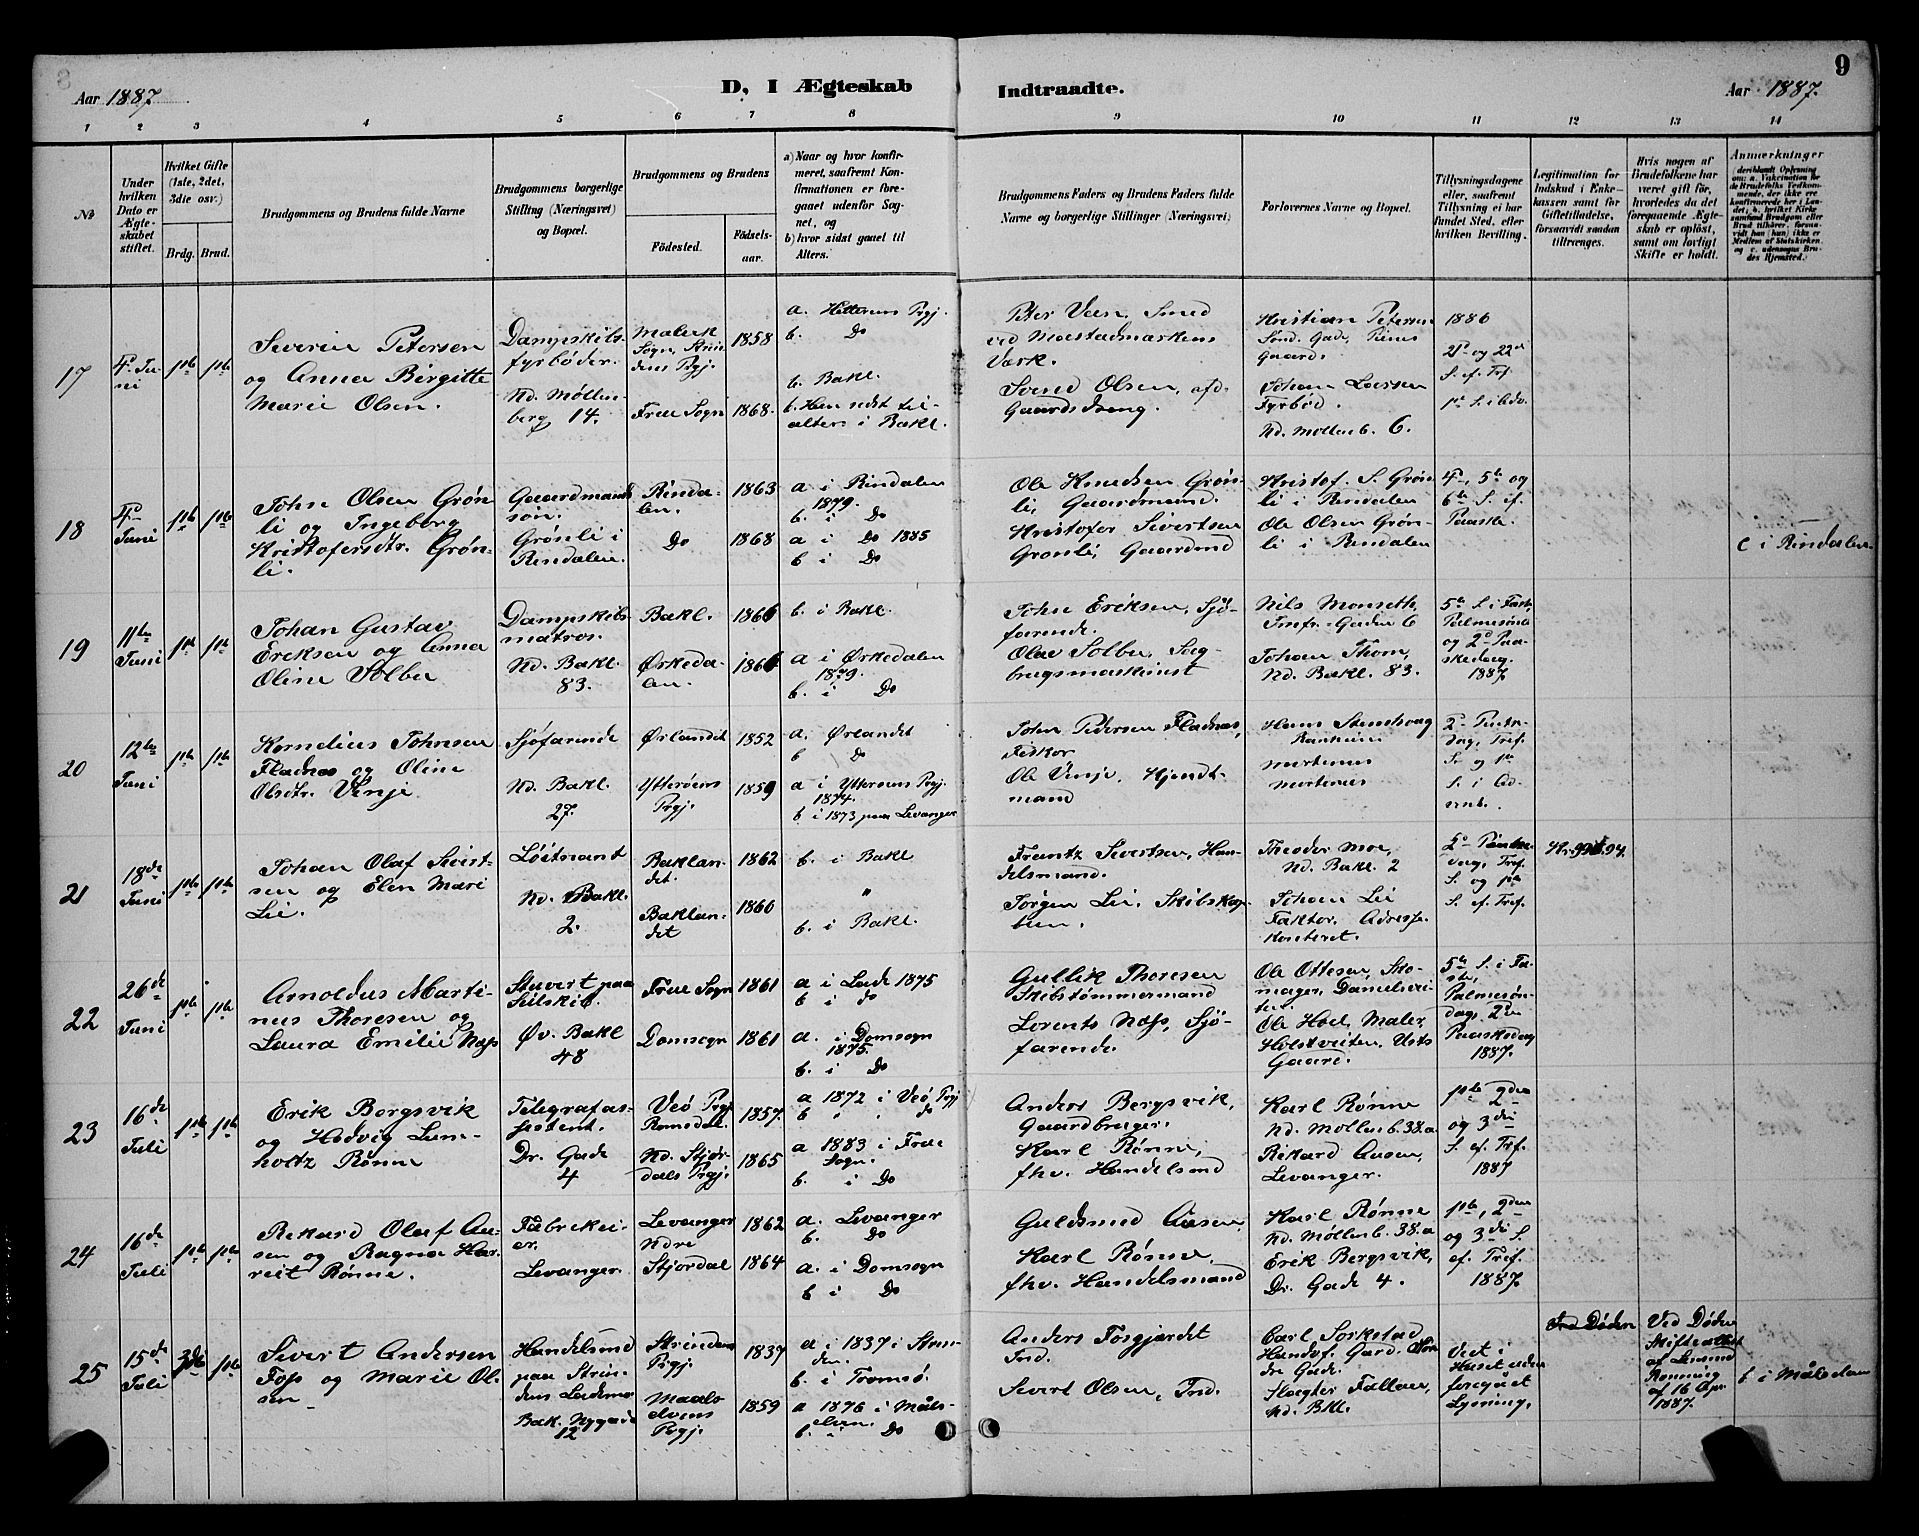 9
Aar 1887.
D, I Ægteskab
Indtraadte.
Aar 1887.
1 2 3 4 5 6 7 8 9 10 11 12 13 14
№
Under
hvilken
Dato er
Ægte-
skabet
stiftet.
Hvilket Gifte
(1ste, 2det,
3die osv.)
Brdg. Brud.
Brudgommens og Brudens fulde Navne
Brudgommens borgerlige
Stilling (Næringsvei)
og Bopæl.
Brudgommens og Brudens
Födested.
Födsels-
aar.
a) Naar og hvor konfir-
meret, saafremt Kon-
firmationen er fore-
gaaet udenfor Sog-
net, og
b) hvor sidst gaaet til
Alters.
Brudgommens Faders og Brudens Faders fulde
Navne og borgerlige Stillinger (Næringsvei)
Forlovernes Navne og Bopæl.
Tillysningsdagene
eller, saafremt
Tillysning ei har
fundet Sted, efter
hvilken Bevilling.
Legitimation for
Indskud i Enke-
kassen samt for
Giftetilladelse,
forsaavidt saadan
tiltrænges.
Hvis nogen af
Brudefolkene har
været gift för,
hvorledes da det
foregaaende Ægte-
skab er oplöst,
samt om lovligt
Skifte er holdt.
Anmærkninger
(deriblandt Oplysning
om: a. Vaccination for
de Brudefolks Vedkom-
mende, der ikke ere
konfirmerede her i Lan-
det; b. hvilket Kirke-
samfund Brudgom eller
Brud tilhörer, forsaa-
vidt han (hun) ikke er
Medlem af Statskirken,
og c. udensogns Bru-
des Hjemsted.)
17
4de Ju-
ni
1ste 1ste
Severin Petersen
og Anna Birgitte
Marie Olsen.
Dampskibs-
fyrböder.
Nd. Möllen-
berg 14.
Malvik
Sogn, Strin-
dens Prgj.
1858
Frue Sogn 1868.
a. Hitterens Prgj.
b. Do
b. Bakl.
b. Hun sidst til-
alters i Bakl.
Peter Veen, Smed
ved Mostadmarkens
Værk.
Svend Olsen, afd.
Gaardsdreng.
Kristian Petersen
Sönd. Gade,
Gaard.
Johan Larsen
Fyrböd.
Nd. Möllenb. 6.
1886
21de og 22de
S. ef. Tref.
1ste S. i Adv.
18
4de
Juni
1ste 1ste
John Olsen Grön-
li og Ingeborg
Kristofersdtr. Grön-
li.
Gaardmands
sön.
Grönli i
Rindalen.
Rinda-
len.
1863
Do 1868
a i Rindalen
1879.
b. i Do
a i Do 1885
b i Do
Ole Knudsen Grön-
li, Gaardmand.
Kristofer Sivertsen
Gronli, Gaardmd
Kristof. S. Grön-
li i Rindalen
Ole Olsen Grön-
li i Rindalen
4de, 5te og
6te S. ef.
Paaske.
c i Rindalen.
19
11te
Juni
1ste 1ste
Johan Gustav
Eriksen og Anna
Oline Solbu
Dampskibs-
matros.
Nd. Bakl.
83.
Bakl. 1866
Örkeda-
len.
1864
b. i Bakl.
a i Örkedalen
1879.
b. i Do
John Eriksen, Sjö-
farende.
Olav Solbu, Sag-
brugsmaskinist
Nils Monseth,
Jmfr. Gaden 6
Johan Thom,
Nd. Bakl. 83.
5te S. i Faste,
Palmesönd.
og 2den Paa-
skedag.
1887.
20
12te
Juni
1ste 1ste
Kornelius Johnsen
Fladnas og Oline
Olsdtr. Vinje
Sjöfarende
Nd. Bakl.
27.
Örlandet 1852
Ytteröens
Prgj.
1859
a. Örlandet
b Do
a i Ytteroens Prgj.
1874.
b i 1873 paa Levanger
John Pedersen Fladnas,
Fisker
Ole Vinje, Hjendt-
mand
Hans Stentsvag
Ranheim
2den Pintse-
dag, Tref.
S. og 1ste
S. i
21
18de
Juni
1ste 1ste
Johan Olaf Sivert-
sen og Elen Mari
Lie.
Löitnant
Nd. Bakl.
2.
Baklan-
det.
1862
Baklan-
det
1860
b. i Bakl
"
b. i Bakl.
Frantz Sivertsen, Han-
delsmand.
Jörgen Lie, Skibskap-
tein.
Theodor Moe,
Nd. Bakl. 2
Johan Lie
Faktor. Adresse-
kontoret.
2den Pintse-
dag, Tref.
S. og 1ste
S. ef. Tref.
22
26de
Juni
1ste 1ste
Arnoldus Marti-
nus Thoresen og
Laura Emilie Nass
Stuert paa
Seilskib.
Öv. Bakl
48
Frue Sogn 1861
Domsogn 1861
a i Lade 1875
b i do
a. i Domsogn
1875.
b. i Do
Gullik Thoresen
Skibstömmermand
Lorents Nass, Sjö-
farende.
Ole Ottesen, Sko-
mager, Danielsvei-
ten.
Ole Hoel, Maler,
Holstveiten, Usts
Gaard.
5te S. i Fa-
ste,
Palmesön-
dag, 2den
Paaskedag
1887.
23
16de
Juli
1ste 1ste
Erik Borgsvik
og Hedvig Lum-
holtz Rönne
Telegrafas-
sistent.
Dr. Gade
4
Veö Prgj
Romsdal.
1857.
Nd. Stjör-
dals Prgj.
1865
a 1872 i Veö Prgj
b i do
a 1883 i Frue
Sogn.
b. i Do
Anders Bergsvik,
Gaardbruger.
Karl Rönne,
fhv. Handelsmd
Karl Rönne
Nd. Möllenb. 38.a
Rikard Aasen,
Levanger.
1ste 2den
og 3die
S. ef. Tref.
1887
24
16de
Juli
1ste 1ste
Rikard Olaf Aa-
sen og Ragna Har-
riet Rönne.
Fabrikei-
er.
Levanger.
Levanger 1862
Ndre
Stjordal 1864
a. Levanger
b. Do
a. i Domsogn
b i Do
Guldsmed Aasen
Karl Rönne,
fhv. Handelsmand
Karl Rönne
Nd. Möllenb. 38.a
Erik Bergsvik,
Dr. Gade 4.
1ste, 2den
og 3die S.
ef. Tref.
1887.
25
15de
Juli
3die 1ste
Sivert Andersen
Foss og Marie Ol-
sen
Handelsmd
paa Strin-
dens Lademo
Bak. Nygade
12
Strindens
Prgj.
1837
Maals-
elvens
Prgj.
1859
a i 1837 i Strin-
den.
b. i Tromsö.
a 1876 i Måls-
elven.
b. i Do
Anders Fosgjærdet
Ind.
Sivert Olsen, Ind.
Carl Sorkstad
Handsf. Gard. Nör-
dre Gade.
Slagter
Nd. Bkl.
Viet i
Huset uden
foregået
Lysning.
Ved Döden
Ved Döden
Skifteattest
af Lensmd
Rönning
af 16 Apr.
1887.
b i Målselven